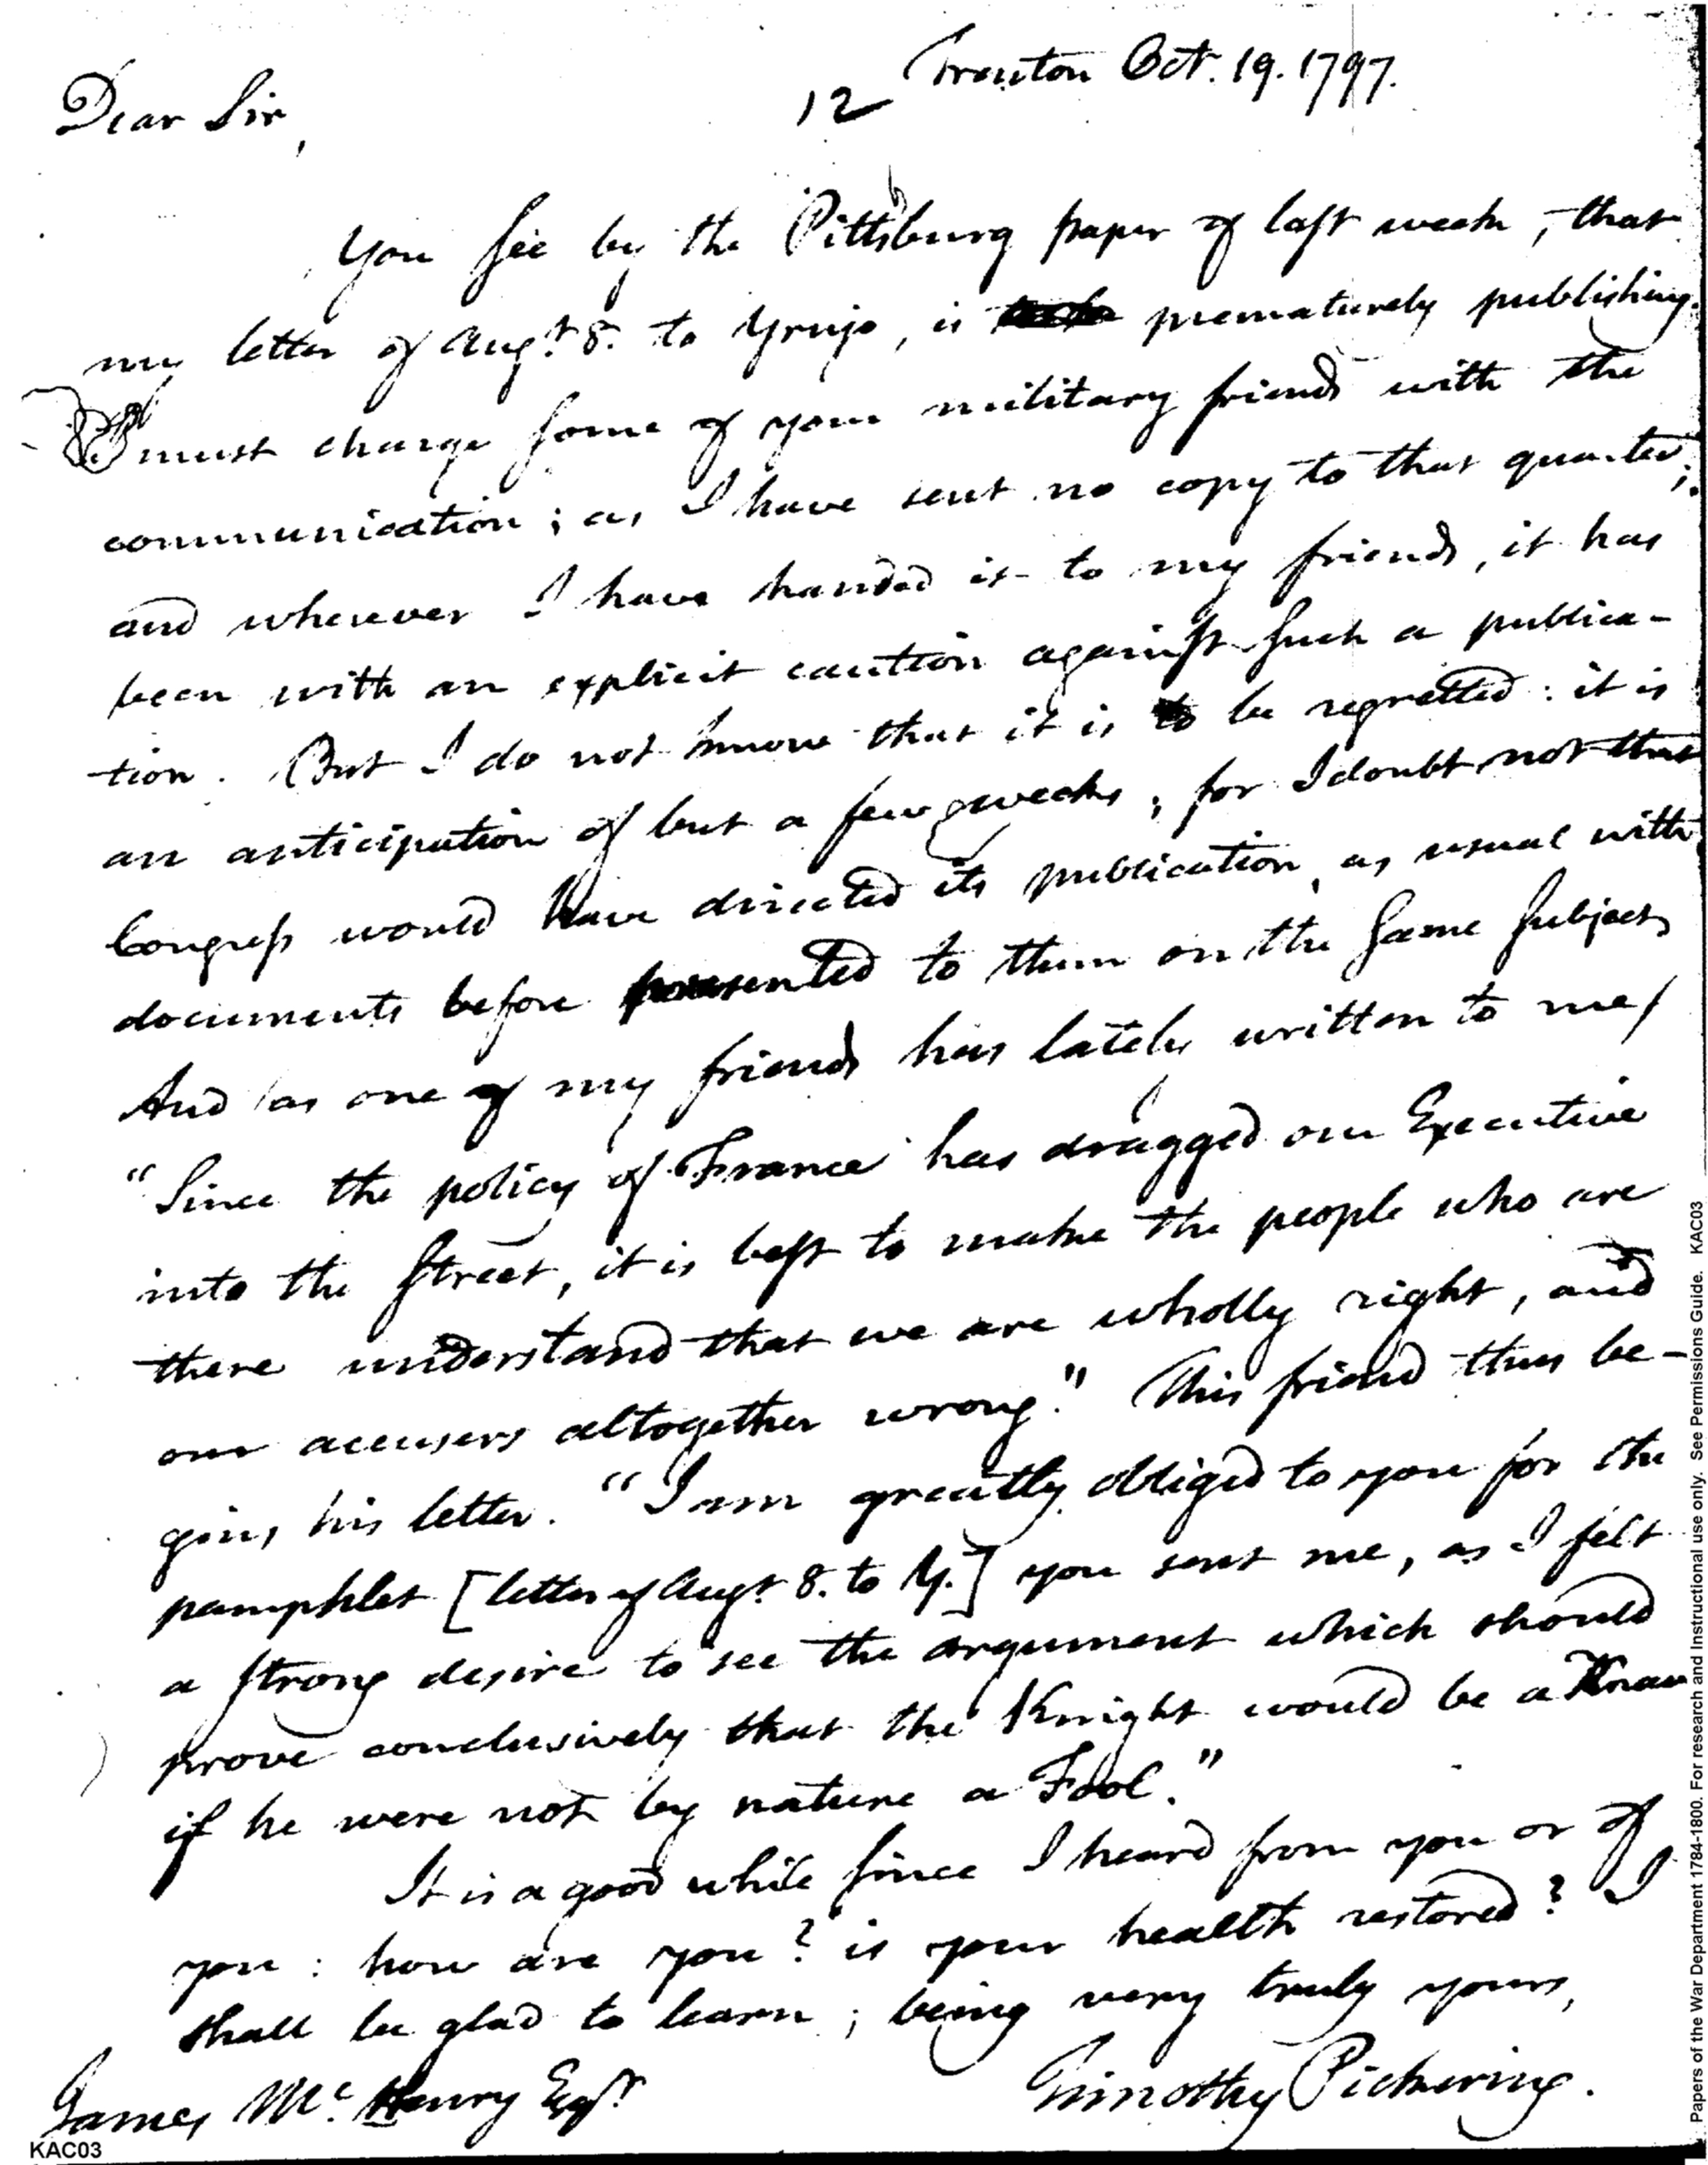 Trenton Oct. 19. 1797.
12
Dear Sir,
You see by the Pittsburg paper of last week, that
my letter of Augt. 8. to Yrujo, is prematurely publishing.
must charge some of your military friends with the
communication; as I have sent no copy to that quarter;
and wherever I have handed it to my friends, it has
been with an explicit caution against such a publica-
tion. But I do not know that it is to be regretted: it is
an anticipation of but a few weeks; for I doubt not that
Congress would have directed its publication, as usual with
documents before presented to them on the same subject,
And /as one of my friends has lately written to me/
"Since the policy of France has dragged our Executive
into the street, it is best to make the people who are
there understand that we are wholly right, and
our accusers altogether wrong." This friend thus be-
gins his letter. "I am greatly obliged to you for the
pamphlet [letter of Augt. 8. to Y.] you sent me, as I felt
a strong desire to see the argument which should
prove conclusively that the Knight would be a Knave
if he were not by nature a Fool."
It is a good while since I heard from you or of
you: how are you? is your health restored? I
shall be glad to learn; being very truly yours,
Timothy Pickering.
James McHenry Esqr.
KAC03
Papers of the War Department 1784-1800. For research and Instructional use only. See Permissions Guide. KAC03